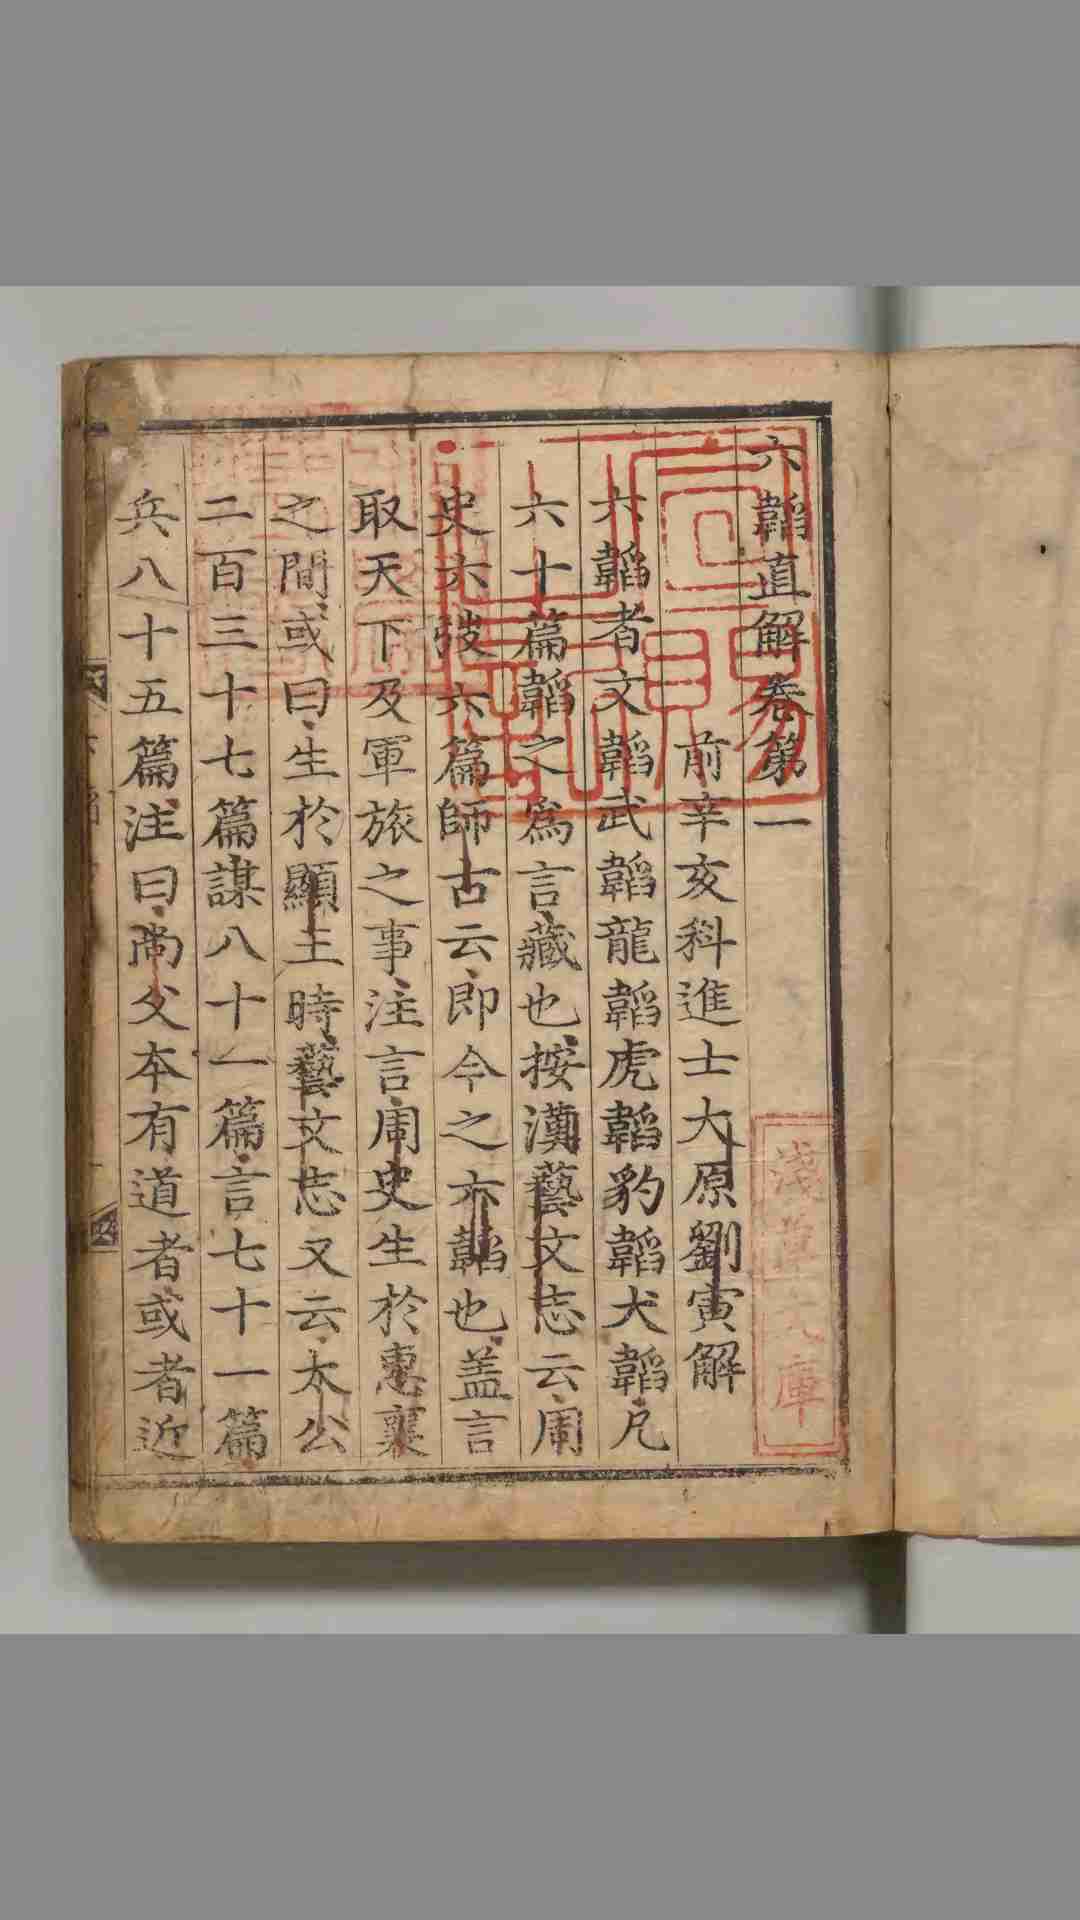 六韜直解卷第一
前辛亥科進士大原劉寅解
六韜者文韜武韜龍韜虎韜豹韜犬韜凡
六十篇韜之爲言藏也按漢藝文志云周
史六弢六篇師古云即今之六韜也盖言
取天下及軍旅之事注言周史生於惠襄
之間或曰生於顯王時藝文志又云太公
二百三十七篇謀八十一篇言七十一篇
兵八十五篇注曰尚父本有道者或者近
淺草文庫